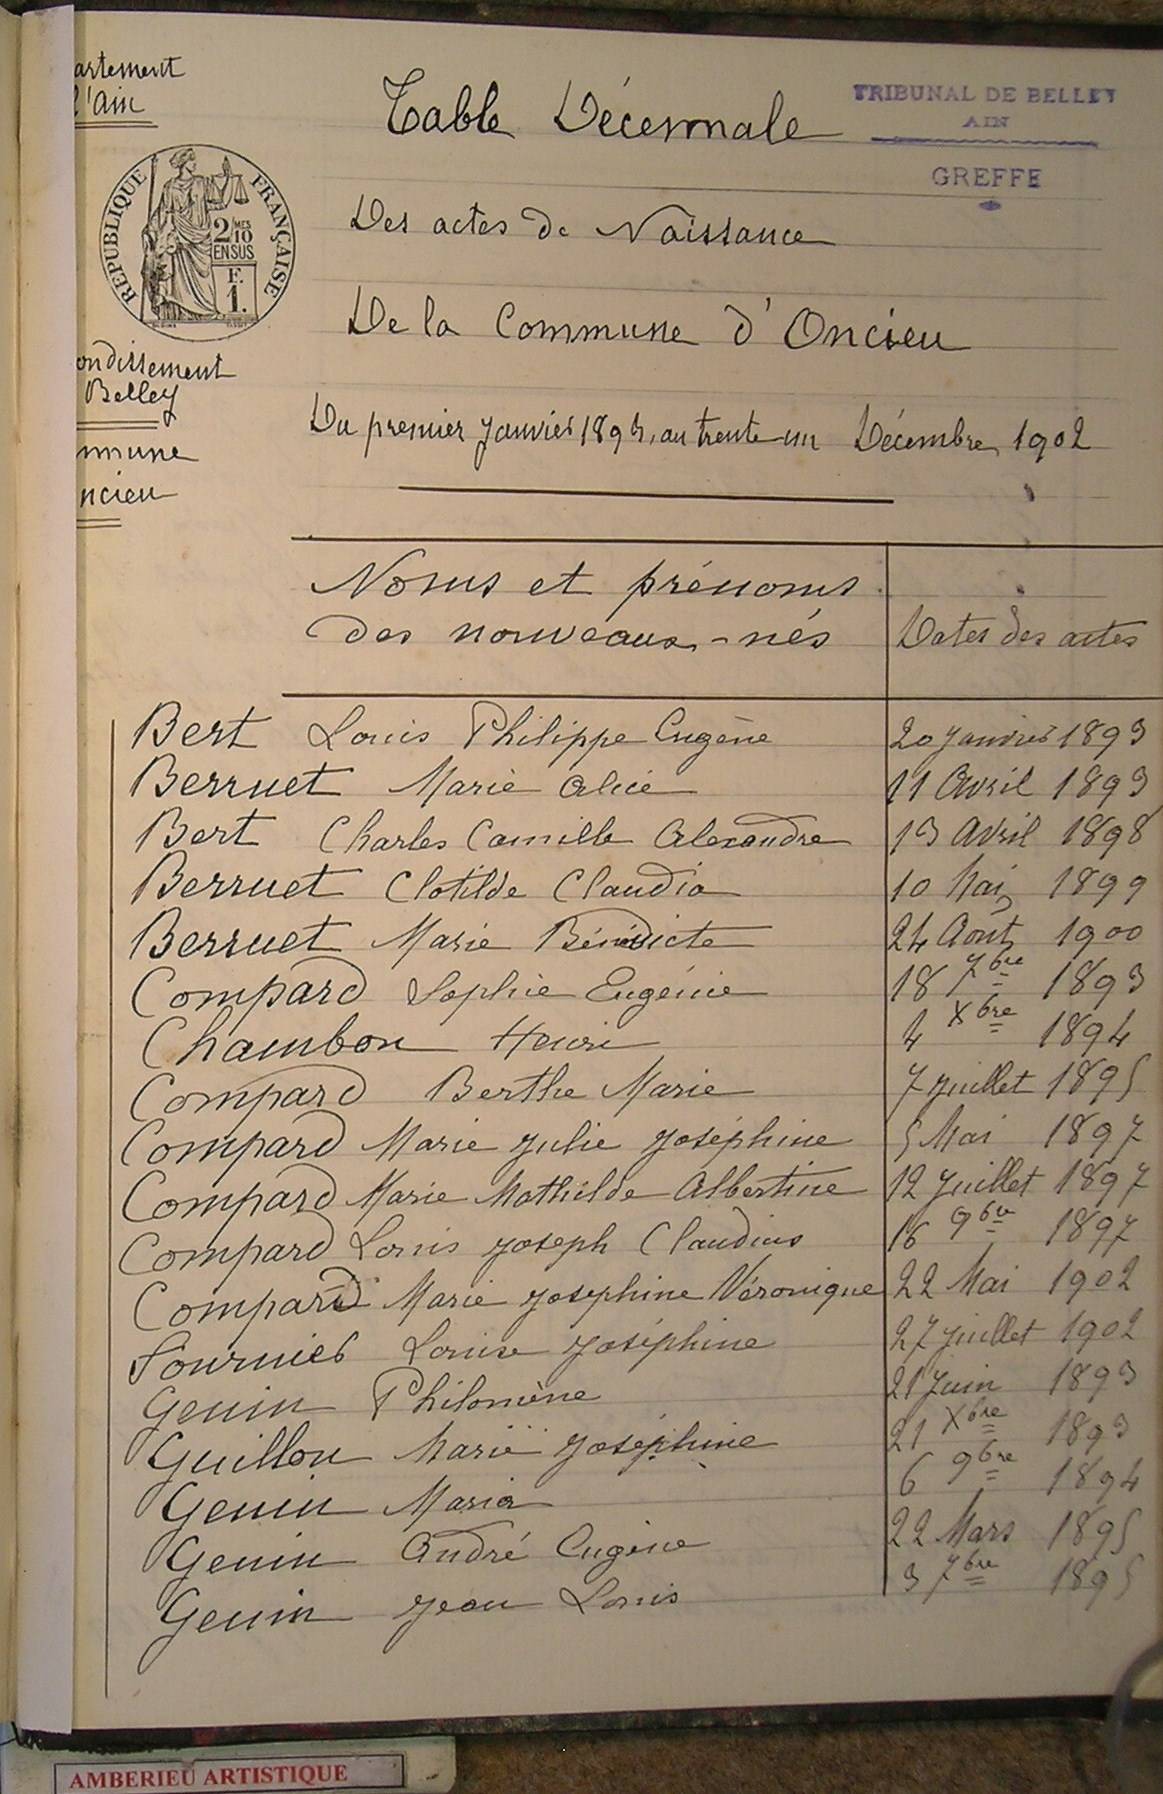 artement
l'ain
Table Décennale
TRIBUNAL DE BELLEY
AIN
GREFFE
RÉPUBLIQUE FRANÇAISE
2/MES
10
EN SUS
F.
1.
Des actes de Naissance
De la Commune d'Oncieu
ondissement
Belley
mmune
ncieu
Du premier Janvier 1893, au trente-un Décembre 1902
Noms et prénoms
des nouveaux-nés
Dates des actes
Bert Louis Philippe Eugène 20 Janvier 1893
Berruet Marie Alice 11 Avril 1893
Bert Charles Camille Alexandre 13 Avril 1898
Berruet Clotilde Claudia 10 Mai 1899
Berruet Marie Bénédicte 24 Août 1900
Compard Sophie Eugénie 18 7bre 1893
Chambon Henri 4 Xbre 1894
Compard Berthe Marie 7 Juillet 1895
Compard Marie Julie Joséphine 5 Mai 1897
Compard Marie Mathilde Albertine 12 Juillet 1897
Compard Louis Joseph Claudius 16 9bre 1897
Compard Marie Josephine Véronique 22 Mai 1902
Fournier Louise Joséphine 27 Juillet 1902
Genin Philomène 21 Juin 1893
Guillon Marie Joséphine 21 Xbre 1893
Genin Maria 6 9bre 1894
Genin André Eugène 22 Mars 1895
Genin Jean Louis 3 7bre 1895
AMBERIEU ARTISTIQUE